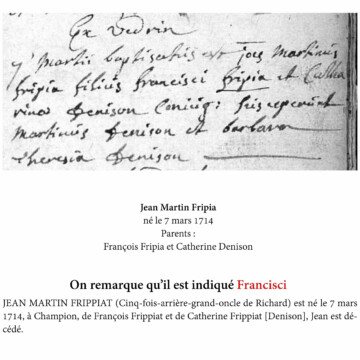 Ex Vedrin
7 Martii baptisatus est joēs Martinus
fripia filius francisci fripia et Catha
rina denison coniug: susceperunt
Martinus denison et barbara
theresia denison
Jean Martin Fripia
né le 7 mars 1714
Parents :
François Fripia et Catherine Denison
On remarque qu'il est indiqué Francisci
JEAN MARTIN FRIPPIAT (Cinq-fois-arrière-grand-oncle de Richard) est né le 7 mars
1714, à Champion, de François Frippiat et de Catherine Frippiat [Denison], Jean est dé-
cédé.